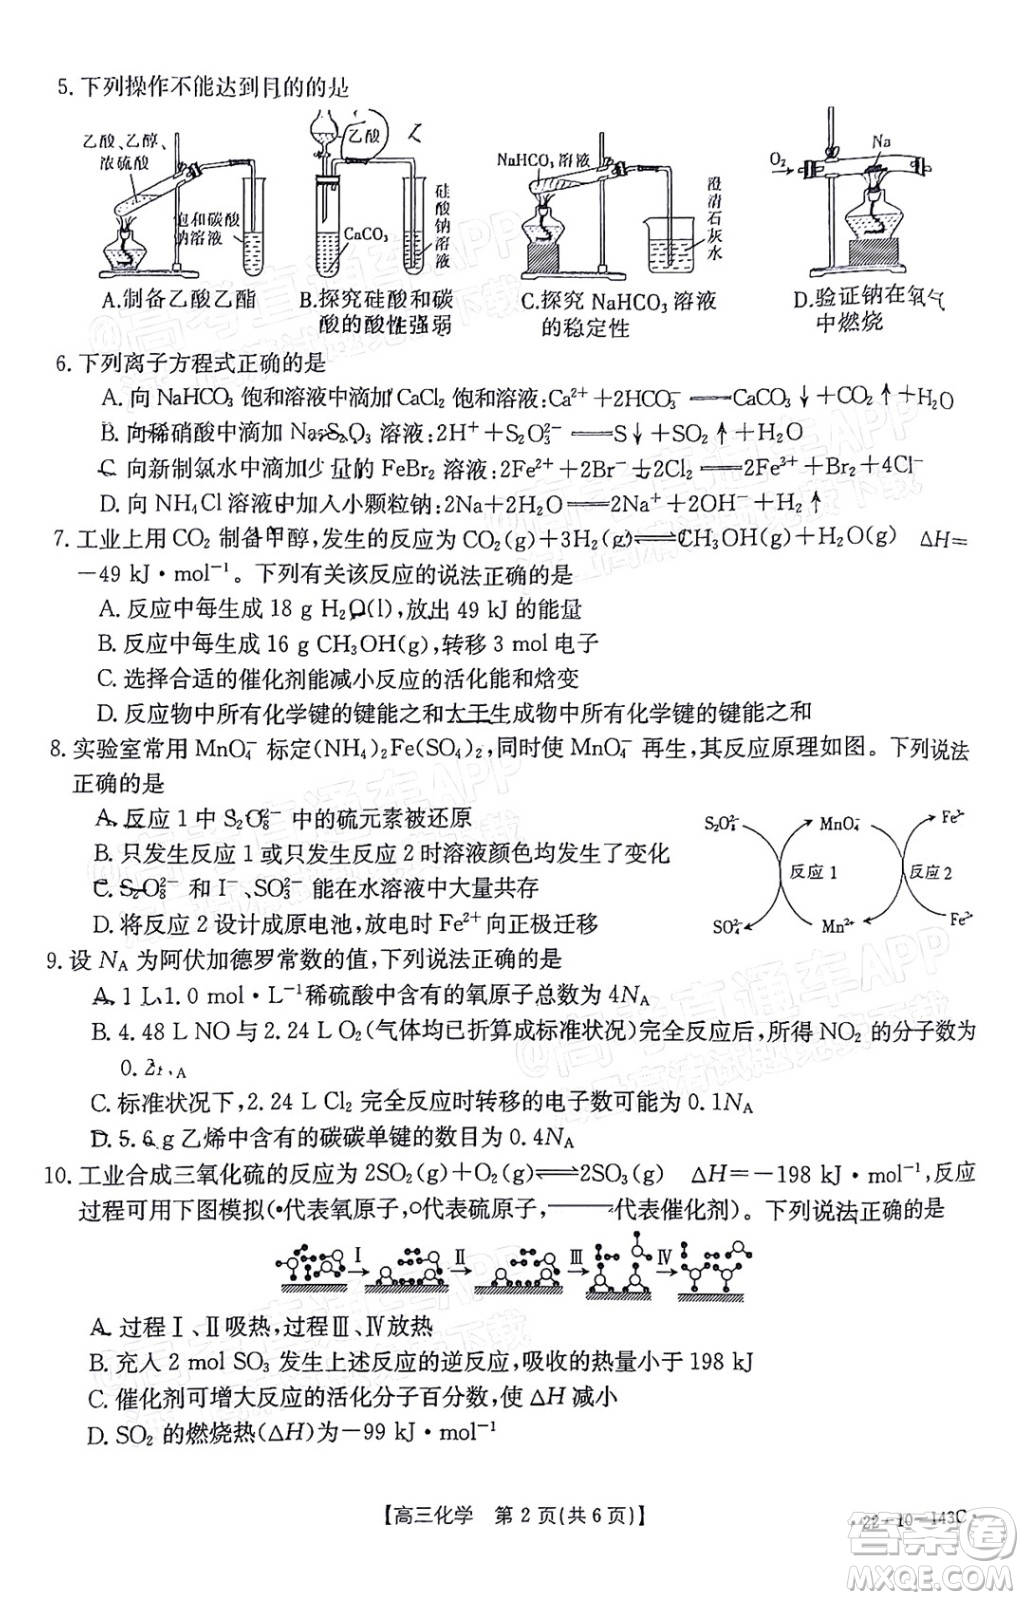 5. 下列操作不能达到目的的是
乙酸、乙醇、
浓硫酸
饱和碳酸
钠溶液
乙酸
乙
CaCO₃
硅酸钠溶液
NaHCO₃溶液
澄清石灰水
O₂
Na
A. 制备乙酸乙酯
B. 探究硅酸和碳
酸的酸性强弱
C. 探究 NaHCO₃ 溶液
的稳定性
D. 验证钠在氧气
中燃烧
6. 下列离子方程式正确的是
A. 向 NaHCO₃ 饱和溶液中滴加 CaCl₂ 饱和溶液:Ca²⁺+2HCO₃⁻══CaCO₃↓+CO₂↑+H₂O
B. 向稀硝酸中滴加 Na₂S₂O₃ 溶液:2H⁺+S₂O₃²⁻══S↓+SO₂↑+H₂O
C. 向新制氯水中滴加少量的 FeBr₂ 溶液:2Fe²⁺+2Br⁻+2Cl₂══2Fe³⁺+Br₂+4Cl⁻
D. 向 NH₄Cl 溶液中加入小颗粒钠:2Na+2H₂O══2Na⁺+2OH⁻+H₂↑
7. 工业上用 CO₂ 制备甲醇,发生的反应为 CO₂(g)+3H₂(g)⇌CH₃OH(g)+H₂O(g) ΔH=
−49 kJ·mol⁻¹。下列有关该反应的说法正确的是
A. 反应中每生成 18 g H₂O(l),放出 49 kJ 的能量
B. 反应中每生成 16 g CH₃OH(g),转移 3 mol 电子
C. 选择合适的催化剂能减小反应的活化能和焓变
D. 反应物中所有化学键的键能之和大于生成物中所有化学键的键能之和
8. 实验室常用 MnO₄⁻ 标定(NH₄)₂Fe(SO₄)₂,同时使 MnO₄⁻ 再生,其反应原理如图。下列说法
正确的是
A. 反应 1 中 S₂O₈²⁻ 中的硫元素被还原
B. 只发生反应 1 或只发生反应 2 时溶液颜色均发生了变化
C. S₂O₈²⁻ 和 I⁻、SO₃²⁻ 能在水溶液中大量共存
D. 将反应 2 设计成原电池,放电时 Fe²⁺ 向正极迁移
S₂O₈²⁻
MnO₄⁻
Fe³⁺
反应 1
反应 2
SO₄²⁻
Mn²⁺
Fe²⁺
9. 设 N_A 为阿伏加德罗常数的值,下列说法正确的是
A. 1 L 1.0 mol·L⁻¹稀硫酸中含有的氧原子总数为 4N_A
B. 4.48 L NO 与 2.24 L O₂(气体均已折算成标准状况)完全反应后,所得 NO₂ 的分子数为
0.2N_A
C. 标准状况下,2.24 L Cl₂ 完全反应时转移的电子数可能为 0.1N_A
D. 5.6 g 乙烯中含有的碳碳单键的数目为 0.4N_A
10. 工业合成三氧化硫的反应为 2SO₂(g)+O₂(g)⇌2SO₃(g) ΔH=−198 kJ·mol⁻¹,反应
过程可用下图模拟(•代表氧原子,○代表硫原子,——代表催化剂)。下列说法正确的是
Ⅰ
Ⅱ
Ⅲ
Ⅳ
A. 过程Ⅰ、Ⅱ吸热,过程Ⅲ、Ⅳ放热
B. 充入 2 mol SO₃ 发生上述反应的逆反应,吸收的热量小于 198 kJ
C. 催化剂可增大反应的活化分子百分数,使 ΔH 减小
D. SO₂ 的燃烧热(ΔH)为−99 kJ·mol⁻¹
【高三化学 第 2 页(共 6 页)】
·22−10−143C·
答案圈
MXQE.COM